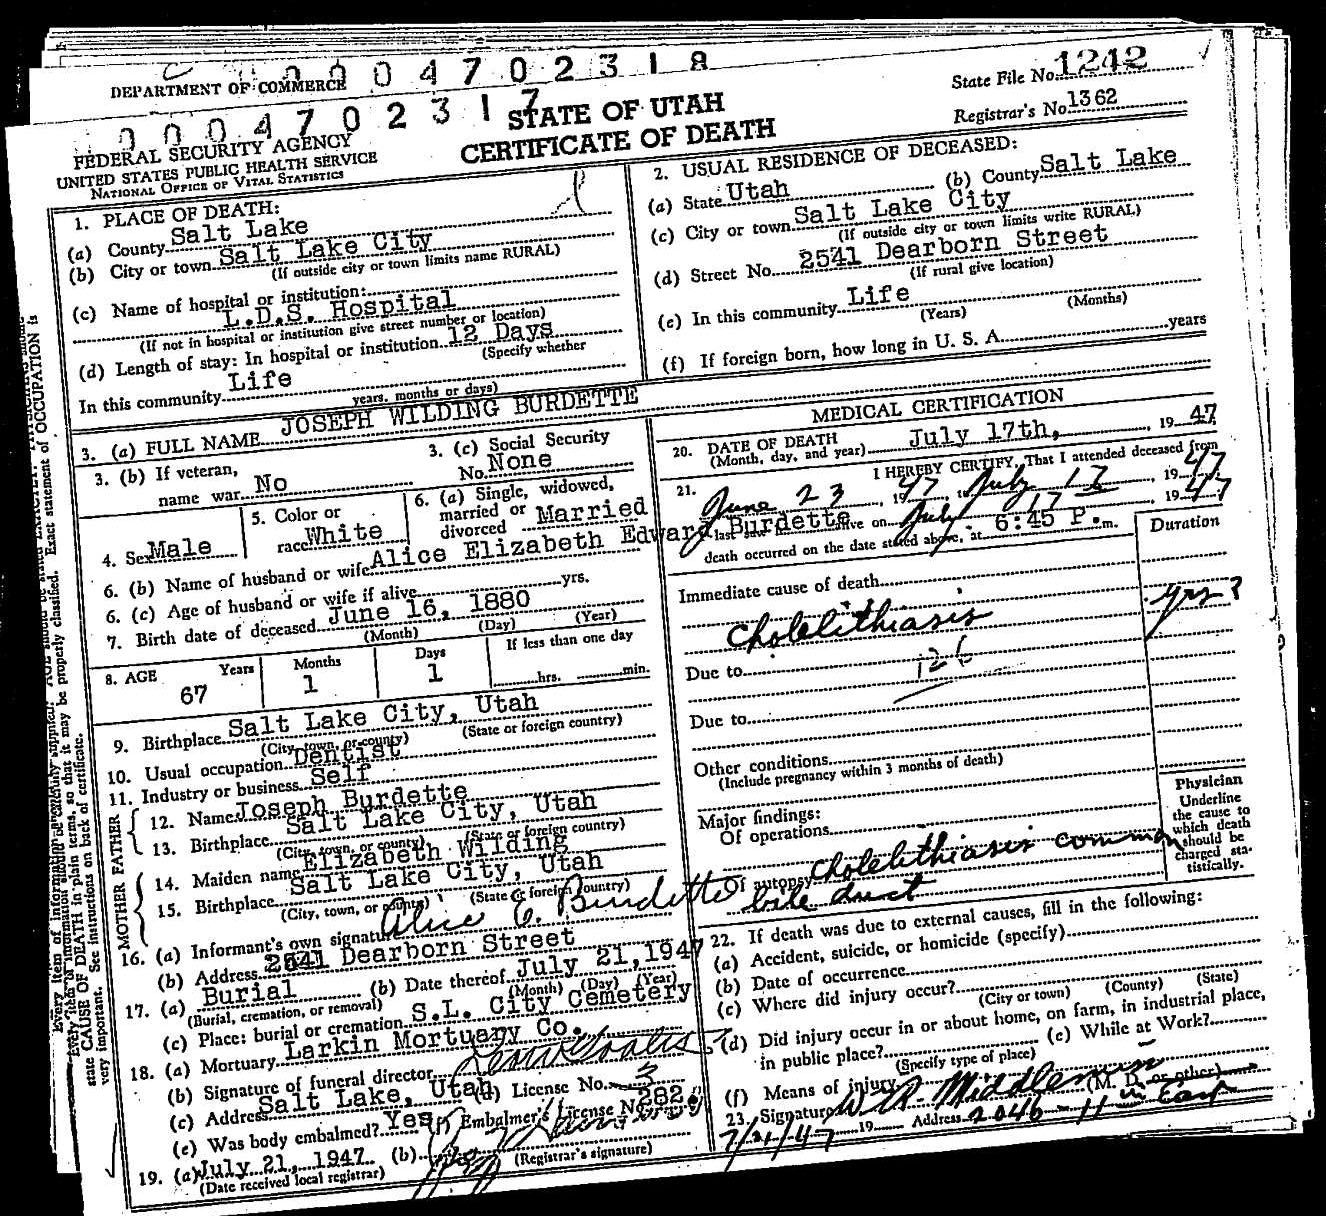 0004702318
DEPARTMENT OF COMMERCE
State File No. 1242
0004702317
STATE OF UTAH
Registrar's No. 1362
FEDERAL SECURITY AGENCY
CERTIFICATE OF DEATH
UNITED STATES PUBLIC HEALTH SERVICE
NATIONAL OFFICE OF VITAL STATISTICS
1. PLACE OF DEATH:
(a) County Salt Lake
(b) City or town Salt Lake City
(If outside city or town limits name RURAL)
(c) Name of hospital or institution:
L.D.S. Hospital
(If not in hospital or institution give street number or location)
(d) Length of stay: In hospital or institution 12 Days
(Specify whether
In this community Life
years, months or days)
2. USUAL RESIDENCE OF DECEASED:
(a) State Utah (b) County Salt Lake
(c) City or town Salt Lake City
(If outside city or town limits write RURAL)
(d) Street No. 2541 Dearborn Street
(If rural give location)
(e) In this community Life
(Years) (Months)
(f) If foreign born, how long in U. S. A. years
3. (a) FULL NAME JOSEPH WILDING BURDETTE
3. (b) If veteran,
name war No
3. (c) Social Security
No. None
4. Sex Male
5. Color or
race White
6. (a) Single, widowed,
married or
divorced Married
6. (b) Name of husband or wife Alice Elizabeth Edward Burdette
6. (c) Age of husband or wife if alive yrs.
7. Birth date of deceased June 16, 1880
(Month) (Day) (Year)
8. AGE Years Months Days If less than one day
67 1 1 hrs. min.
9. Birthplace Salt Lake City, Utah
(City, town, or county) (State or foreign country)
10. Usual occupation Dentist
11. Industry or business Self
FATHER
12. Name Joseph Burdette
13. Birthplace Salt Lake City, Utah
(City, town, or county) (State or foreign country)
MOTHER
14. Maiden name Elizabeth Wilding
15. Birthplace Salt Lake City, Utah
(City, town, or county) (State or foreign country)
16. (a) Informant's own signature Alice E. Burdette
(b) Address 2541 Dearborn Street
17. (a) Burial (b) Date thereof July 21, 1947
(Burial, cremation, or removal) (Month) (Day) (Year)
(c) Place: burial or cremation S.L. City Cemetery
18. (a) Mortuary Larkin Mortuary Co.
(b) Signature of funeral director
(c) Address Salt Lake, Utah (d) License No. 3
(e) Was body embalmed? Yes (f) Embalmer's License No. 282
19. (a) July 21, 1947 (b)
(Date received local registrar) (Registrar's signature)
MEDICAL CERTIFICATION
20. DATE OF DEATH
(Month, day, and year) July 17th, 1947
21. I HEREBY CERTIFY, That I attended deceased from
June 23, 1947 to July 17 1947
last saw alive on July 17 1947
death occurred on the date stated above, at 6:45 P. m.
Duration
Immediate cause of death
Cholelithiasis yrs?
Due to 126
Due to
Other conditions
(Include pregnancy within 3 months of death)
Major findings:
Of operations
Of autopsy Cholelithiasis common
bile duct
Physician
Underline
the cause to
which death
should be
charged sta-
tistically.
22. If death was due to external causes, fill in the following:
(a) Accident, suicide, or homicide (specify)
(b) Date of occurrence
(c) Where did injury occur?
(City or town) (County) (State)
(d) Did injury occur in or about home, on farm, in industrial place,
in public place? (e) While at Work?
(Specify type of place)
(f) Means of injury
23. Signature (M. D. or other)
7/21/47 19 Address 2046 - 11th East
state CAUSE OF DEATH in plain terms, so that it may be properly classified. Exact statement of OCCUPATION is
very important. See instructions on back of certificate.